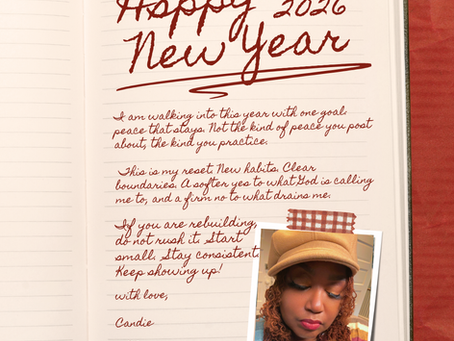 Happy 2026
New Year
I am walking into this year with one goal,
peace that stays. Not the kind of peace you post
about, the kind you practice.
This is my reset. New habits. Clear
boundaries. A softer yes to what God is calling
me to, and a firm no to what drains me.
If you are rebuilding,
do not rush it. Start
small. Stay consistent.
Keep showing up!
with love,
Candie